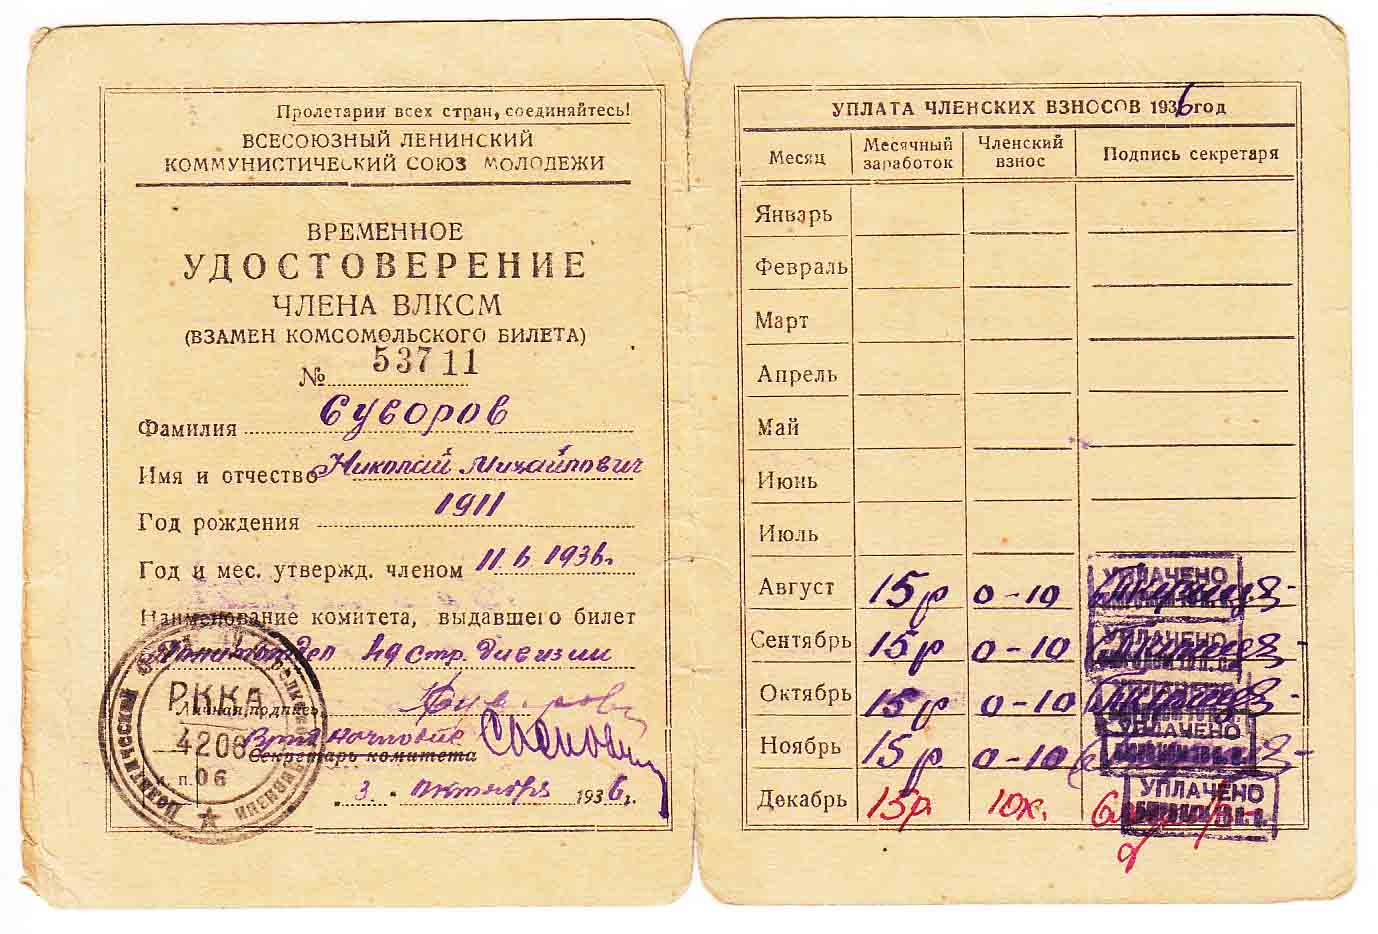 Пролетарии всех стран, соединяйтесь!
ВСЕСОЮЗНЫЙ ЛЕНИНСКИЙ
КОММУНИСТИЧЕСКИЙ СОЮЗ МОЛОДЕЖИ
ВРЕМЕННОЕ
УДОСТОВЕРЕНИЕ
ЧЛЕНА ВЛКСМ
(ВЗАМЕН КОМСОМОЛЬСКОГО БИЛЕТА)
№ 53711
Фамилия Суворов
Имя и отчество Николай Михайлович
Год рождения 1911
Год и мес. утвержд. членом 11 6 1936г.
Наименование комитета, выдавшего билет
Политотдел 49 стр. дивизии
Личная подпись
Секретарь комитета
3 октября 1936г.
Политический
РККА
4206
п. 06
УПЛАТА ЧЛЕНСКИХ ВЗНОСОВ 1936 год
Месяц Месячный заработок Членский взнос Подпись секретаря
Январь
Февраль
Март
Апрель
Май
Июнь
Июль
Август 15р 0-10 УПЛАЧЕНО
Сентябрь 15р 0-10 УПЛАЧЕНО
Октябрь 15р 0-10
Ноябрь 15р 0-10 УПЛАЧЕНО
Декабрь 15р. 10к. УПЛАЧЕНО